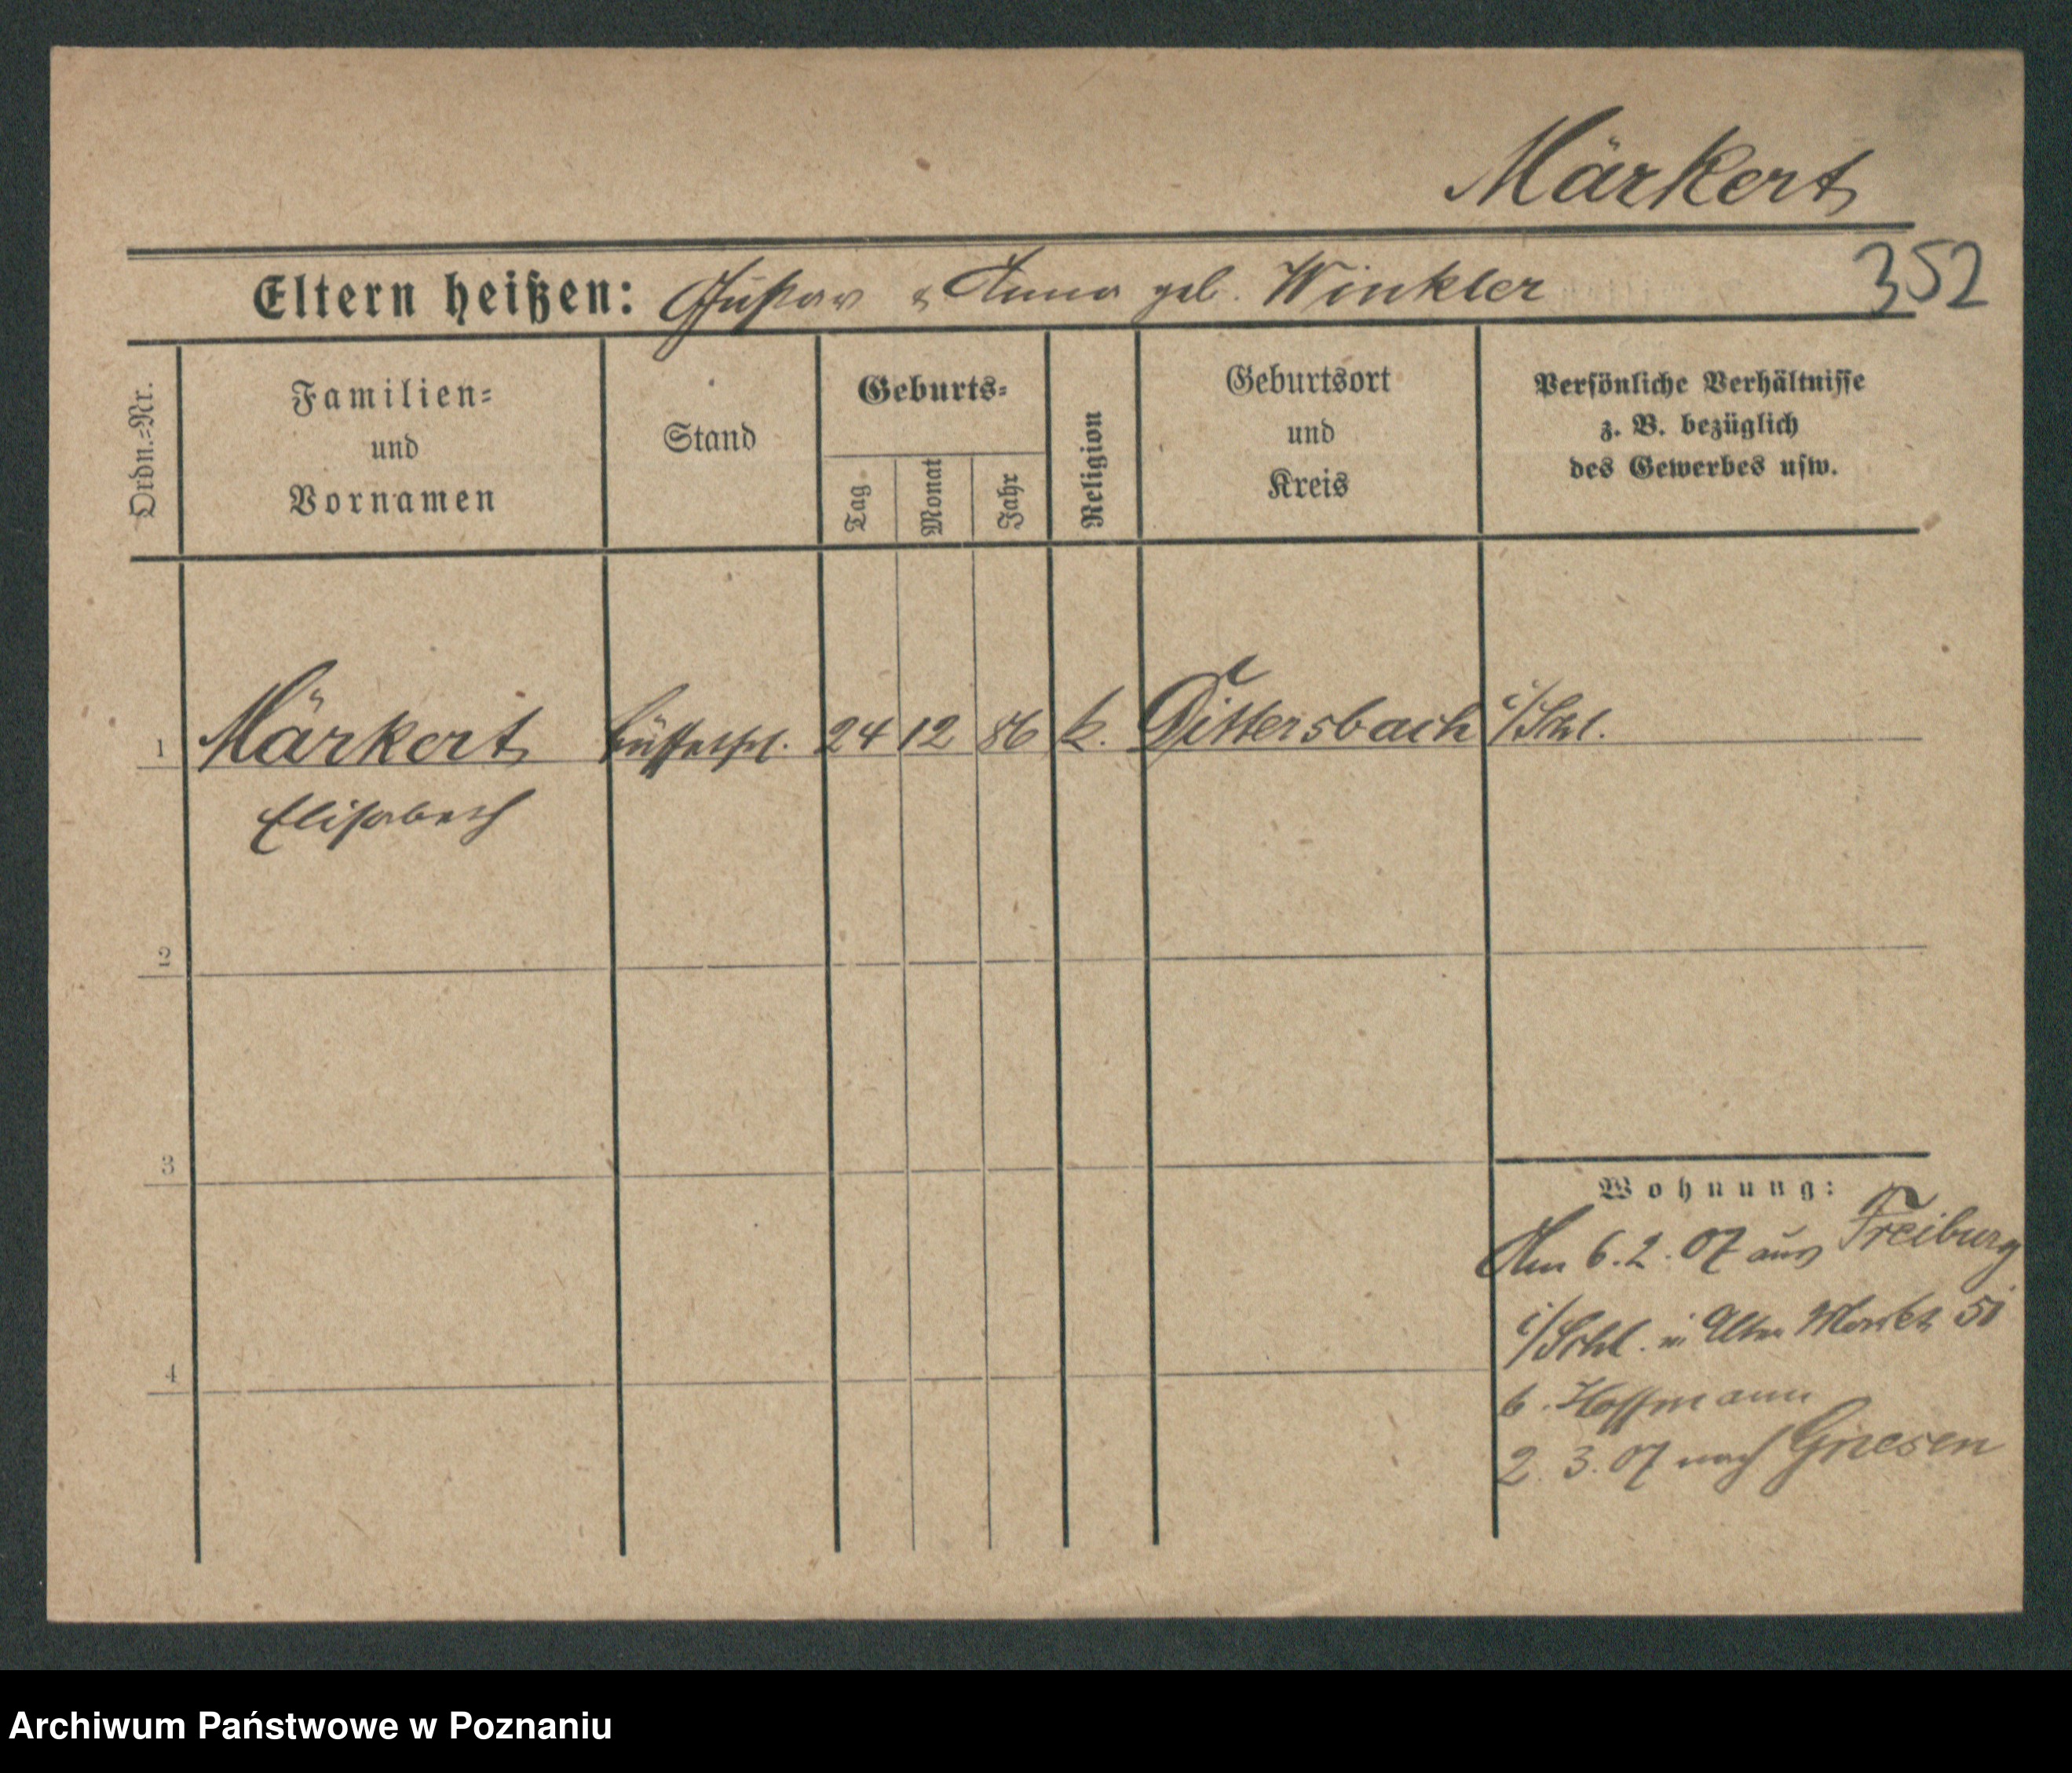 Märkert
352
Eltern heißen: Gustav & Anna geb. Winkler
Ordn.=Nr.
Familien=
und
Vornamen
Stand
Geburts=
Tag
Monat
Jahr
Religion
Geburtsort
und
Kreis
Persönliche Verhältnisse
z. B. bezüglich
des Gewerbes usw.
1 Märkert Büffetfrl. 24 12 86 k. Dittersbach i/Schl.
Elisabeth
2
3
4
Wohnung:
Am 6.2.07 aus Freiburg
i/Schl. in Alter Markt 51
b. Hoffmann
2.3.07 nach Gnesen
Archiwum Państwowe w Poznaniu